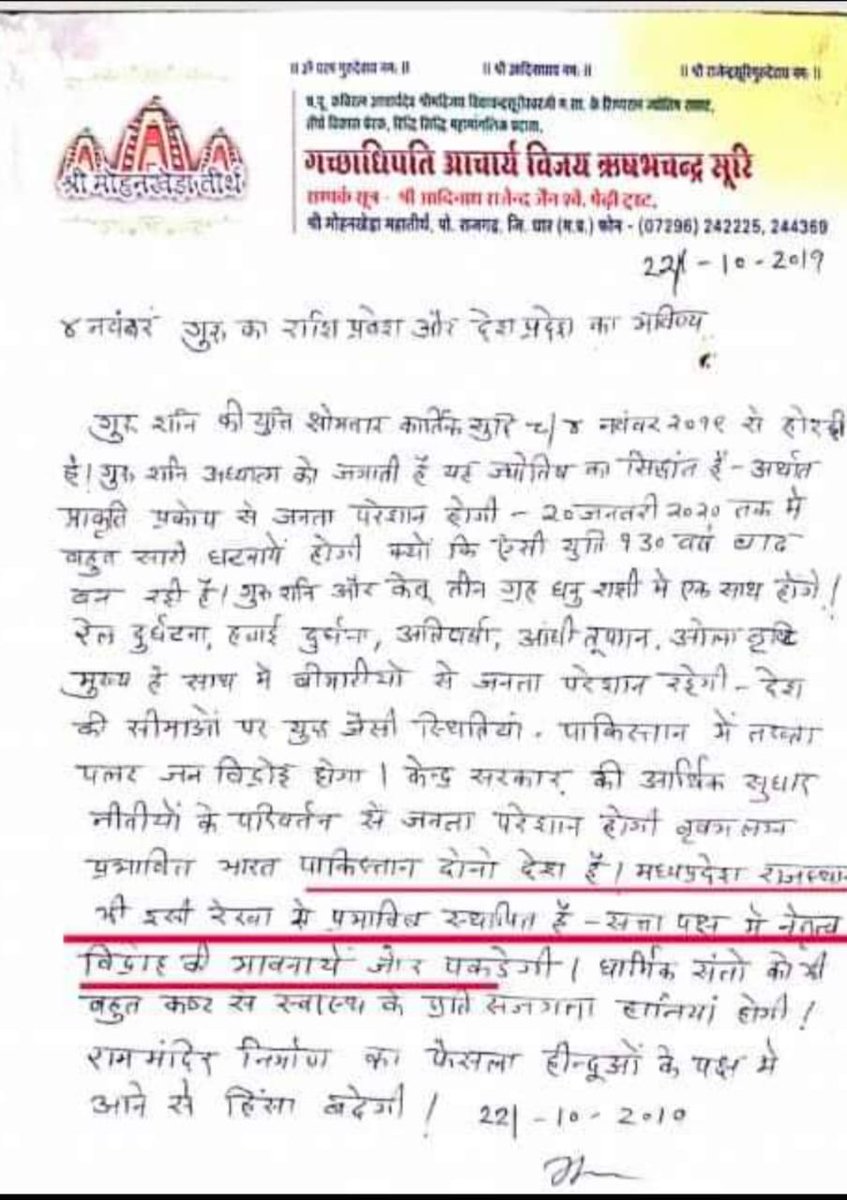 ॥ ॐ परम गुरुदेवाय नमः ॥ ॥ श्री आदिनाथाय नमः ॥ ॥ श्री राजेन्द्रसूरिगुरुदेवाय नमः ॥
प.पू. कविरत्न आचार्यदेव श्रीमद्विजय विद्याचन्द्रसूरीश्वरजी म.सा. के शिष्यरत्न ज्योतिष सम्राट,
तीर्थ विकास प्रेरक, रिद्धि सिद्धि महामांगलिक प्रदाता,
गच्छाधिपति आचार्य विजय ऋषभचन्द्र सूरि
श्री मोहनखेड़ा तीर्थ
सम्पर्क सूत्र - श्री आदिनाथ राजेन्द्र जैन श्वे. पेढ़ी ट्रस्ट,
श्री मोहनखेड़ा महातीर्थ, पो. राजगढ़, जि. धार (म.प्र.) फोन - (07296) 242225, 244369
22/-10-2019
४ नवंबर गुरु का राशि प्रवेश और देश प्रदेश का भविष्य
गुरु शनि की युति सोमवार कार्तिक सुदि ८/४ नवंबर २०१९ से होरही
है। गुरु शनि अध्यात्म को जगाती हैं यह ज्योतिष का सिद्धांत है - अर्थात
प्राकृति प्रकोप से जनता परेशान होगी - २० जनवरी २०२० तक मे
बहुत सारी घटनायें होगी क्यों कि ऐसी युति १३० वर्ष बाद
बन रही है। गुरु शनि और केतु तीन ग्रह धनु राशी मे एक साथ होंगे!
रेल दुर्घटना, हवाई दुर्घटना, अतिवर्षा, आंधी तूफान, ओला वृष्टि
मुख्य है साथ मे बीमारीयो से जनता परेशान रहेगी - देश
की सीमाओं पर युद्ध जैसी स्थितियां. पाकिस्तान में तख्ता
पलट जन विद्रोह होगा। केन्द्र सरकार की आर्थिक सुधार
नीतीयों के परिवर्तन से जनता परेशान होगी वृषभ लग्न
प्रभावित भारत पाकिस्तान दोनो देश हैं। मध्यप्रदेश राजस्थान
भी इसी रेखा से प्रभावित स्थापित हैं - सत्ता पक्ष मे नेतृत्व
विद्रोह की भावनायें जोर पकडेगी। धार्मिक संतो को भी
बहुत कष्ट से स्वास्थ के प्रति सजगता हानियां होगी!
राम मंदिर निर्माण का फैसला हीन्दूओं के पक्ष मे
आने से हिंसा बढेगी! 22/-10-2019